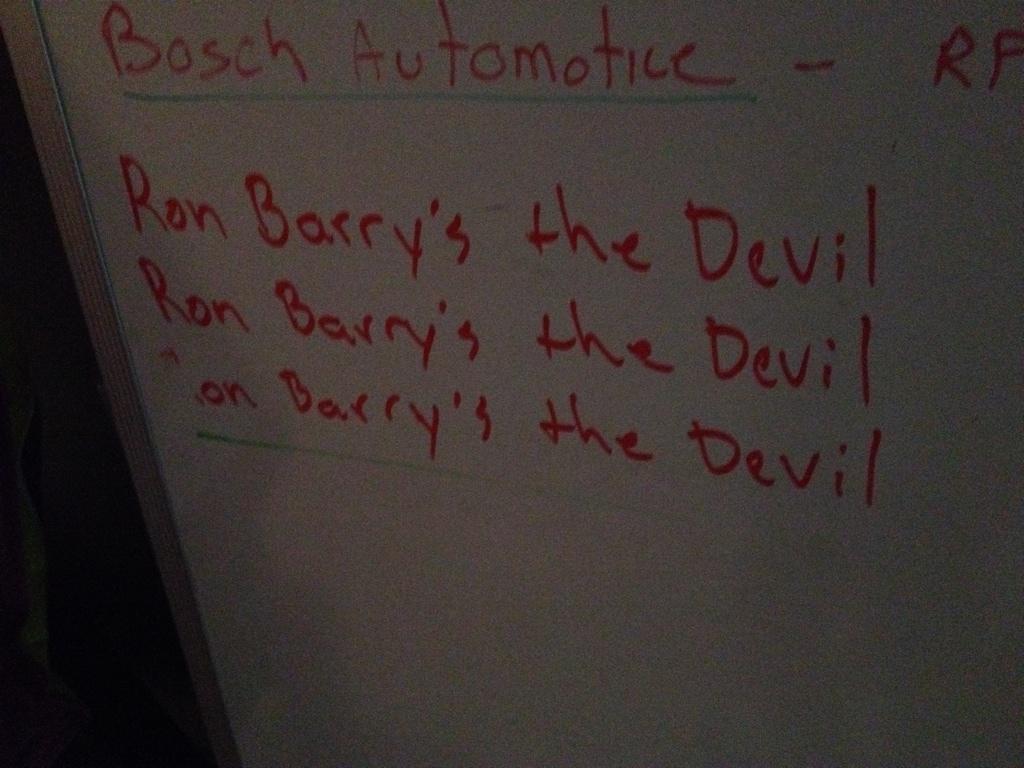 Bosch Automotice - RF
Ron Barry's the Devil
Ron Barry's the Devil
on Barry's the Devil